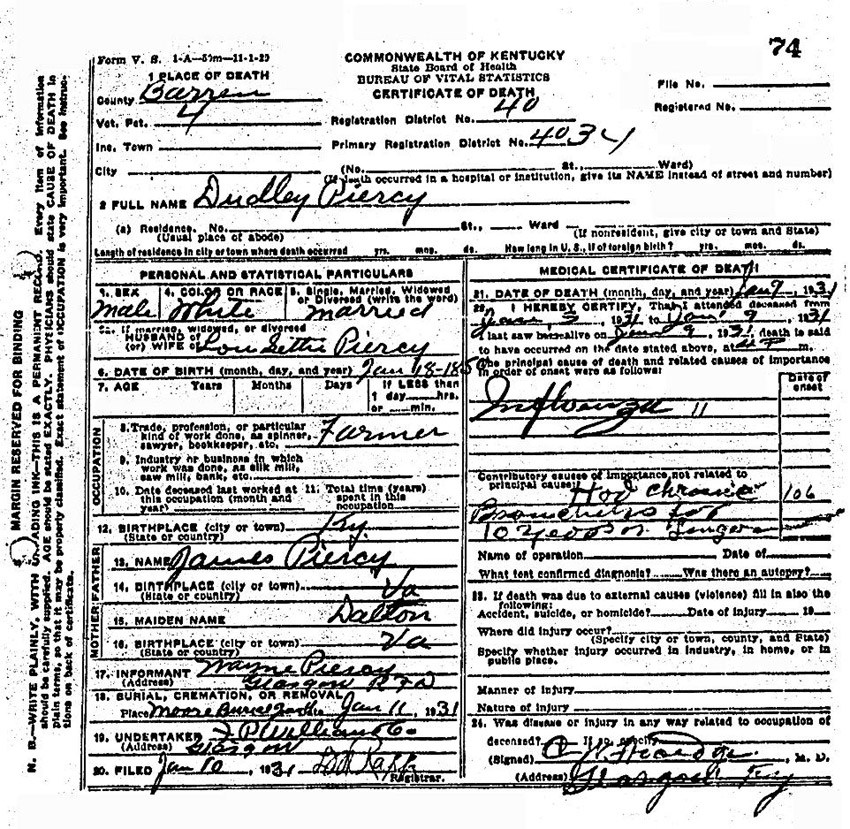 74
Form V. S. 1-A—50m—11-1-29
COMMONWEALTH OF KENTUCKY
State Board of Health
BUREAU OF VITAL STATISTICS
CERTIFICATE OF DEATH
File No.
Registered No.
1 PLACE OF DEATH
County Barren
Vot. Pct. 4
Inc. Town
City
Registration District No. 40
Primary Registration District No. 4034
(No. St., Ward)
(If death occurred in a hospital or institution, give its NAME instead of street and number)
2 FULL NAME Dudley Piercy
(a) Residence. No. St., Ward
(Usual place of abode) (If nonresident, give city or town and State)
Length of residence in city or town where death occurred yrs. mos. ds. How long in U. S., if of foreign birth? yrs. mos. ds.
MARGIN RESERVED FOR BINDING
N. B.—WRITE PLAINLY, WITH UNFADING INK—THIS IS A PERMANENT RECORD. Every item of information
should be carefully supplied. AGE should be stated EXACTLY. PHYSICIANS should state CAUSE OF DEATH in
plain terms, so that it may be properly classified. Exact statement of OCCUPATION is very important. See instruc-
tions on back of certificate.
PERSONAL AND STATISTICAL PARTICULARS
3. SEX 4. COLOR OR RACE 5. Single, Married, Widowed
or Divorced (write the word)
Male White married
5a. If married, widowed, or divorced
HUSBAND of
(or) WIFE of Piercy
6. DATE OF BIRTH (month, day, and year) Jan 18-185
7. AGE Years Months Days If LESS than
1 day hrs.
or min.
OCCUPATION
8. Trade, profession, or particular
kind of work done, as spinner,
sawyer, bookkeeper, etc. Farmer
9. Industry or business in which
work was done, as silk mill,
saw mill, bank, etc.
10. Date deceased last worked at
this occupation (month and
year)
11. Total time (years)
spent in this
occupation
12. BIRTHPLACE (city or town) Ky.
(State or country)
FATHER
13. NAME James Piercy
14. BIRTHPLACE (city or town) Va
(State or country)
MOTHER
15. MAIDEN NAME Dalton
16. BIRTHPLACE (city or town) Va
(State or country)
17. INFORMANT Wayne Piercy
(Address) Glasgow RFD
18. BURIAL, CREMATION, OR REMOVAL
Place Moore Date Jan 11, 1931
19. UNDERTAKER F. P. Williams Co
(Address) Glasgow
20. FILED Jan 10, 1931
Registrar.
MEDICAL CERTIFICATE OF DEATH
21. DATE OF DEATH (month, day, and year) Jan 9, 1931
22. I HEREBY CERTIFY, That I attended deceased from
Jan, 3, 1931 to Jan 9, 1931
I last saw him alive on Jan 9, 1931, death is said
to have occurred on the date stated above, at m.
The principal cause of death and related causes of importance
in order of onset were as follows:
Date of
onset
Influenza 11
Contributory causes of importance not related to
principal cause:
Had chronic 106
Bronchitis for
10 years or longer
Name of operation Date of
What test confirmed diagnosis? Was there an autopsy?
23. If death was due to external causes (violence) fill in also the
following:
Accident, suicide, or homicide? Date of injury 19
Where did injury occur?
(Specify city or town, county, and State)
Specify whether injury occurred in industry, in home, or in
public place.
Manner of injury
Nature of injury
24. Was disease or injury in any way related to occupation of
deceased? If so, specify
(Signed) M. D.
(Address) Glasgow Ky